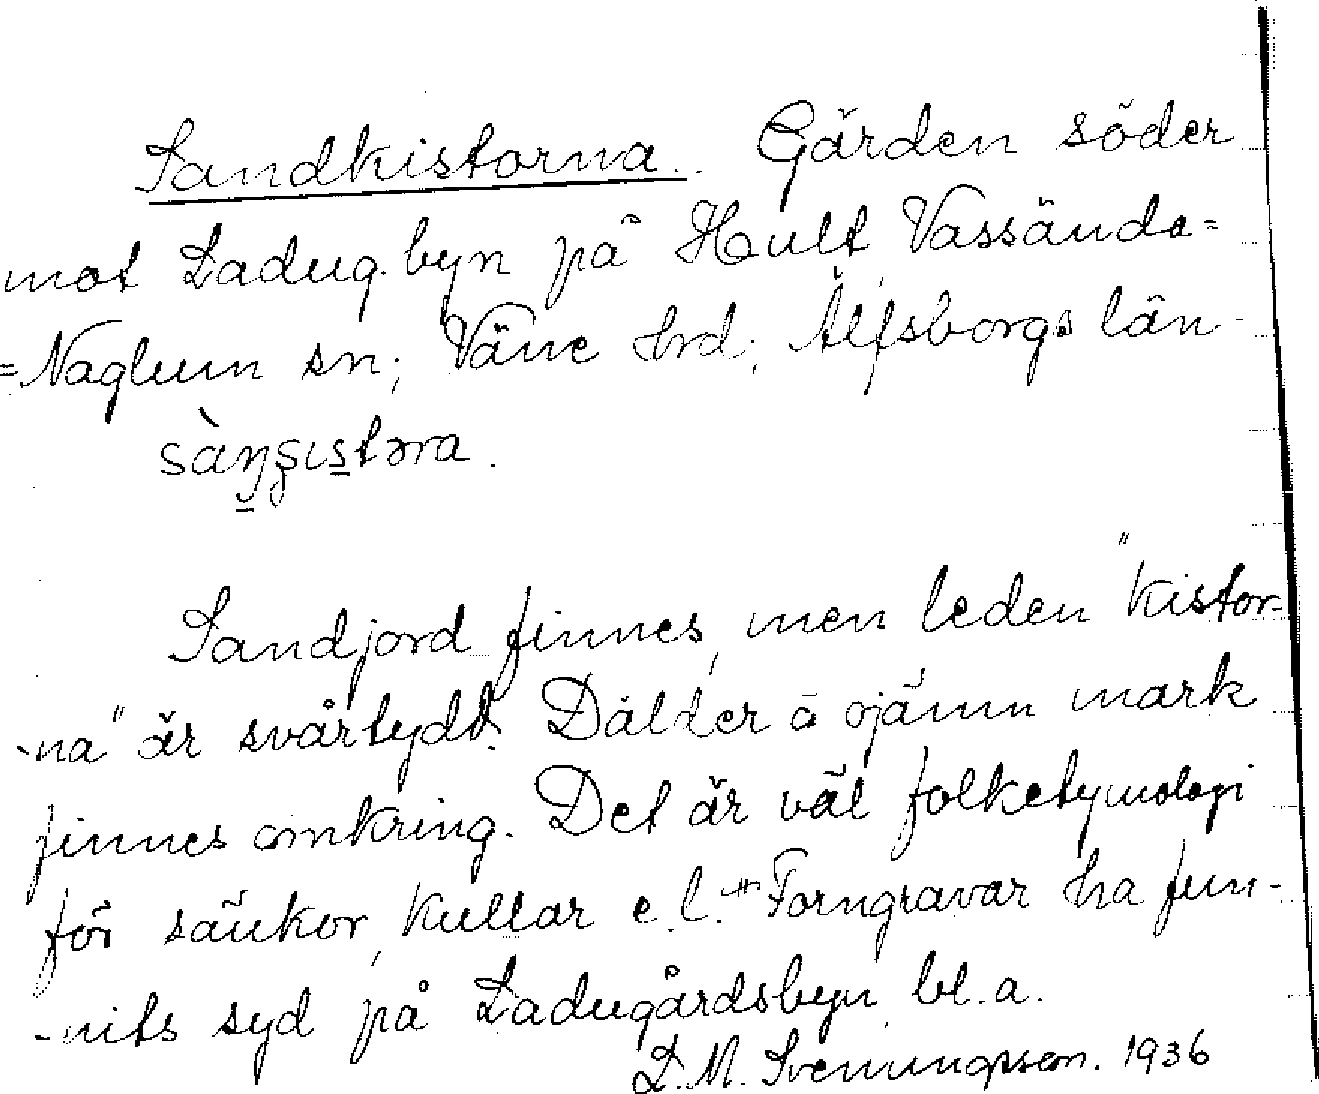 Sandkistorna. Gärden söder
mot Ladug.byn på Hult Vassända=
=Naglum sn; Väne hrd; Älfsborgs län
sàŋʂısṯəra.
Sandjord finnes, men leden "Kistor-
-na" är svårtydd. Dälder å ojämn mark
finnes omkring. Det är väl folketymologi
för sänkor, Kullar e.l. Forngravar ha fun-
-nits syd på Ladugårdsbyn bl.a.
L.M. Svenungsson. 1936